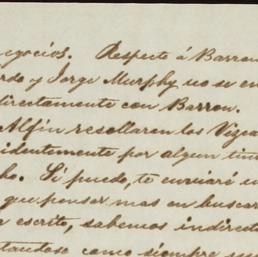 negocios. Respecto á Barron
rdo y Jorge Murphy no se en
directamente con Barron.
Alfin resollaron los Vizca
identemente por algun tim
ho. Si puedo, te enviaré u
que pensar mas en buscar
escrito, sabemos indirect
tandose como siempre